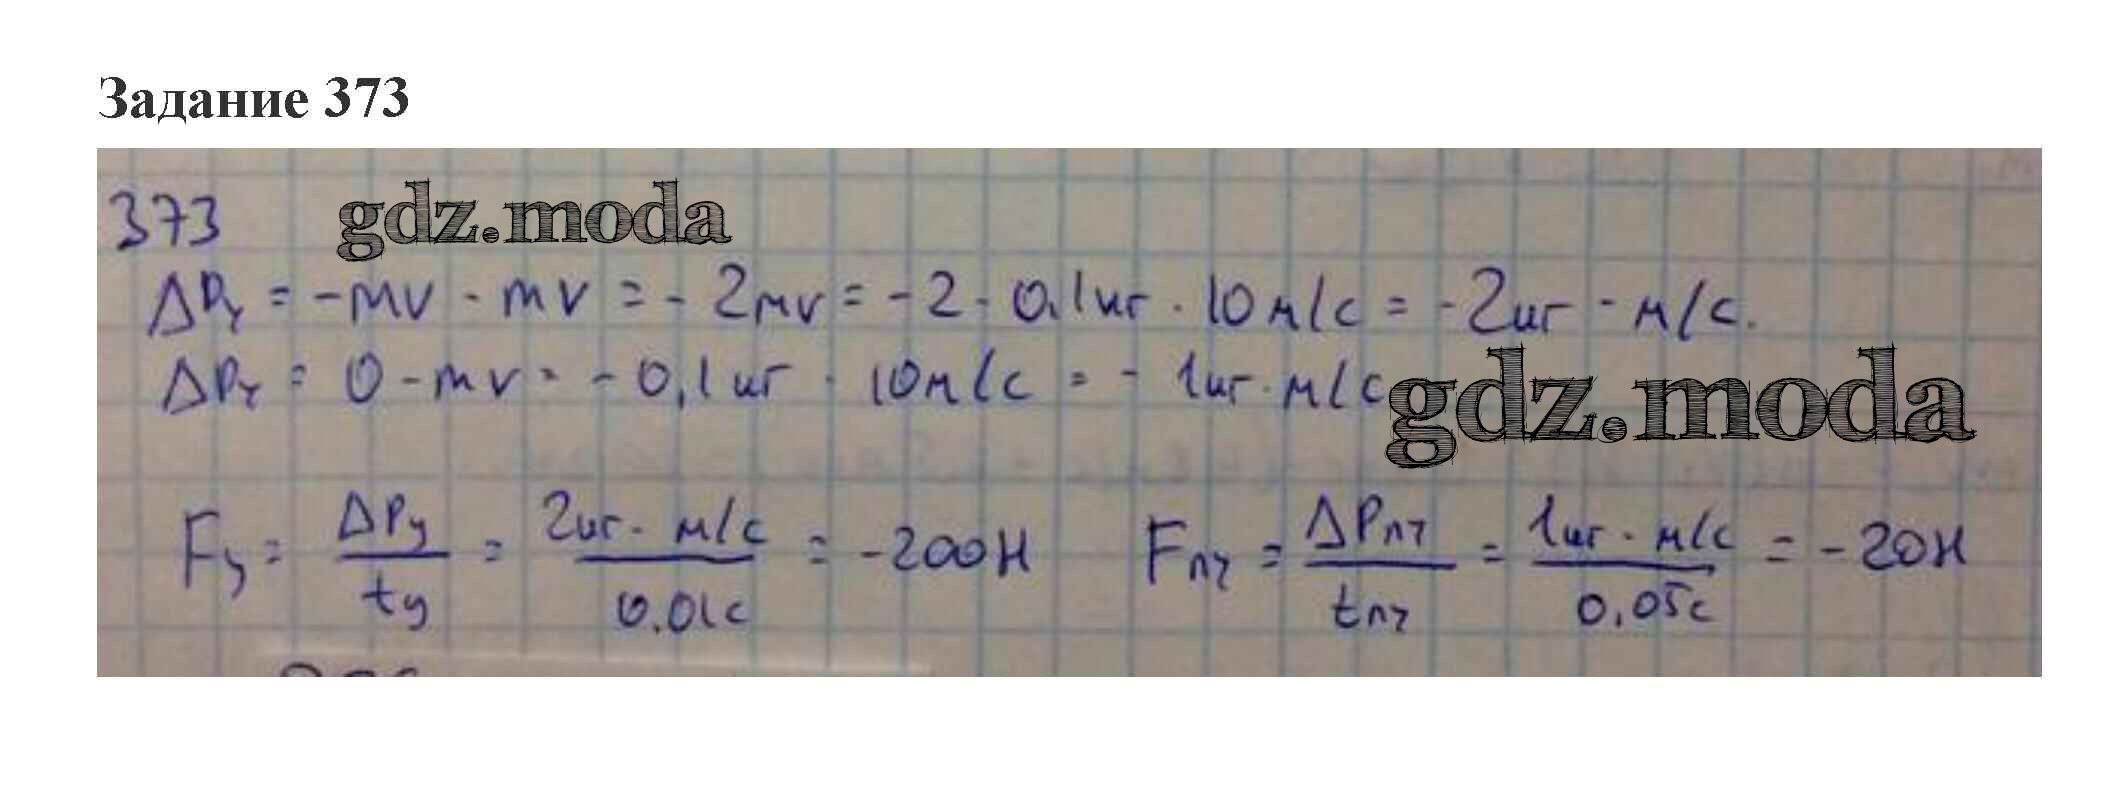 Задание 373
373 gdz.moda
ΔPy = -mv - mv = -2mv = -2 · 0,1кг · 10м/с = -2кг · м/с.
ΔPy = 0 - mv = -0,1кг · 10м/с = -1кг·м/с
gdz.moda
Fy = ΔPy/ty = 2кг·м/с / 0.01с = -200Н Fпл = ΔPпл/tпл = 1кг·м/с / 0,05с = -20Н